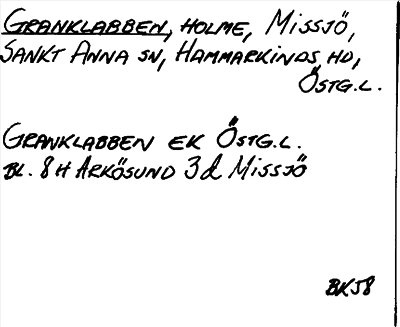 GRANKLABBEN, HOLME, MISSJÖ,
SANKT ANNA SN, HAMMARKINDS HD,
ÖSTG.L.
GRANKLABBEN EK ÖSTG.L.
BL. 8H ARKÖSUND 3d MISSJÖ
BK58